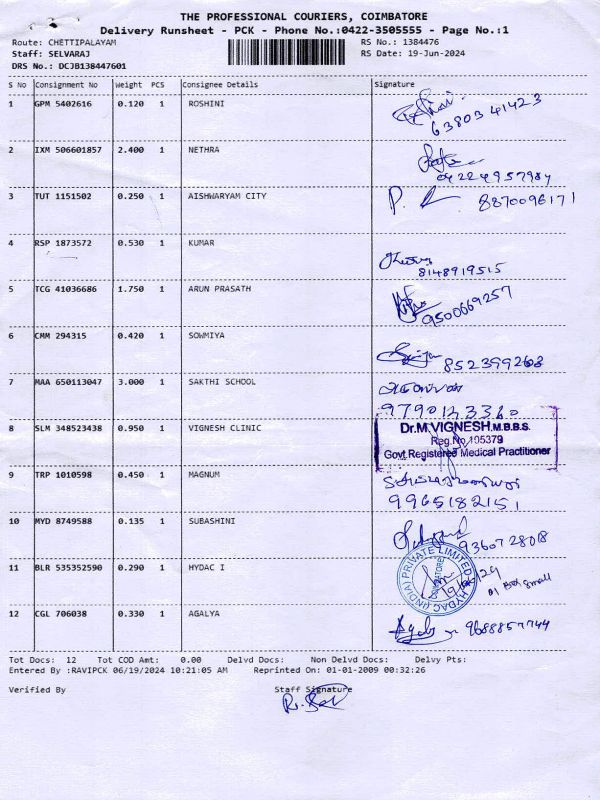 THE PROFESSIONAL COURIERS, COIMBATORE
Delivery Runsheet - PCK - Phone No.:0422-3505555 - Page No.:1
Route: CHETTIPALAYAM
RS No.: 1384476
Staff: SELVARAJ
RS Date: 19-Jun-2024
DRS No.: DCJB138447601
S No Consignment No Weight PCS Consignee Details Signature
1 GPM 5402616 0.120 1 ROSHINI
6380341423
2 IXM 506601857 2.400 1 NETHRA
04224957984
3 TUT 1151502 0.250 1 AISHWARYAM CITY
8870096171
4 RSP 1873572 0.530 1 KUMAR
8148919515
5 TCG 41036686 1.750 1 ARUN PRASATH
9500669257
6 CMM 294315 0.420 1 SOWMIYA
7 MAA 650113047 3.000 1 SAKTHI SCHOOL
8 SLM 348523438 0.950 1 VIGNESH CLINIC
Dr.M.VIGNESH.M.B.B.S.
Reg.No.105379
Govt.Registered Medical Practitioner
9 TRP 1010598 0.450 1 MAGNUM
9965182151
10 MYD 8749588 0.135 1 SUBASHINI
9360728018
11 BLR 535352590 0.290 1 HYDAC I
HYDAC (INDIA) PRIVATE LIMITED
COIMBATORE
01 Box small
12 CGL 706038 0.330 1 AGALYA
9688857744
Tot Docs: 12 Tot COD Amt: 0.00 Delvd Docs: Non Delvd Docs: Delvy Pts:
Entered By :RAVIPCK 06/19/2024 10:21:05 AM Reprinted On: 01-01-2009 00:32:26
Verified By
Staff Signature